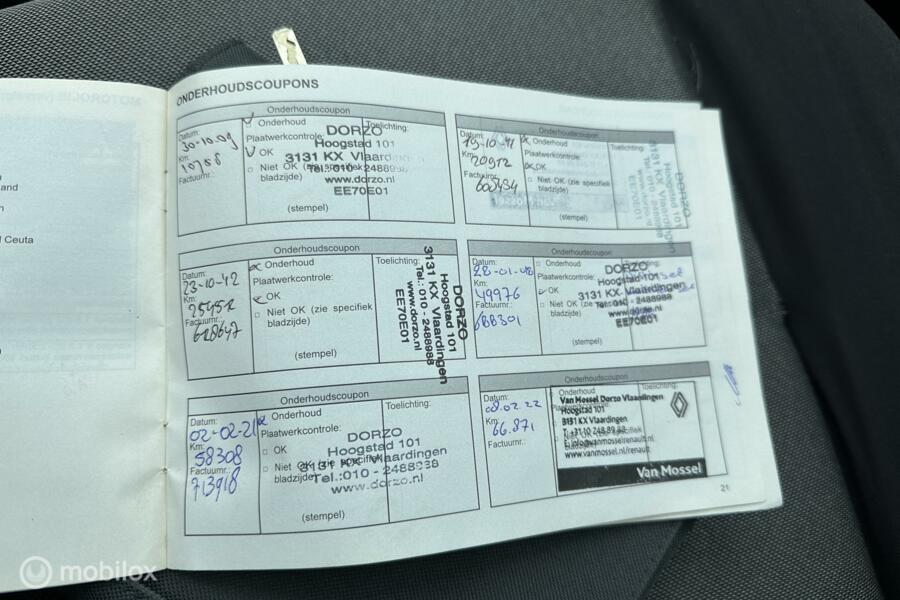 ONDERHOUDSCOUPONS
Onderhoudscoupon
Datum:
30-10-09
Km:
10788
Factuurnr.:
Onderhoud
Plaatwerkcontrole:
OK
Niet OK (zie specifiek
bladzijde)
(stempel)
Toelichting:
DORZO
Hoogstad 101
3131 KX Vlaardingen
Tel.: 010 - 2488988
www.dorzo.nl
EE70E01
Onderhoudscoupon
Datum:
Km:
20912
Factuurnr.:
600434
Onderhoud
Plaatwerkcontrole:
OK
Niet OK (zie specifiek
bladzijde)
(stempel)
Toelichting:
DORZO
Hoogstad 101
3131 KX Vlaardingen
Tel.: 010 - 2488988
www.dorzo.nl
EE70E01
Onderhoudscoupon
Datum:
23-10-12
Km:
25452
Factuurnr.:
628647
Onderhoud
Plaatwerkcontrole:
OK
Niet OK (zie specifiek
bladzijde)
(stempel)
Toelichting:
DORZO
Hoogstad 101
3131 KX Vlaardingen
Tel.: 010 - 2488988
www.dorzo.nl
EE70E01
Onderhoudscoupon
Datum:
Km:
49976
Factuurnr.:
688301
Onderhoud
Plaatwerkcontrole:
OK
Niet OK (zie specifiek
bladzijde)
(stempel)
Toelichting:
DORZO
Hoogstad 101
3131 KX Vlaardingen
Tel.: 010 - 2488988
www.dorzo.nl
EE70E01
Onderhoudscoupon
Datum:
02-02-21
Km:
58308
Factuurnr.:
713918
Onderhoud
Plaatwerkcontrole:
OK
Niet OK (zie specifiek
bladzijde)
(stempel)
Toelichting:
DORZO
Hoogstad 101
3131 KX Vlaardingen
Tel.: 010 - 2488988
www.dorzo.nl
Onderhoudscoupon
Datum:
08.02.22
Km:
66.871
Factuurnr.:
Onderhoud
Toelichting:
Van Mossel Dorzo Vlaardingen
Hoogstad 101
3131 KX Vlaardingen
T: +31 10 248 89 88
E: info@vanmosselrenault.nl
www.vanmossel.nl/renault
Van Mossel
21
and
Ceuta
mobilox